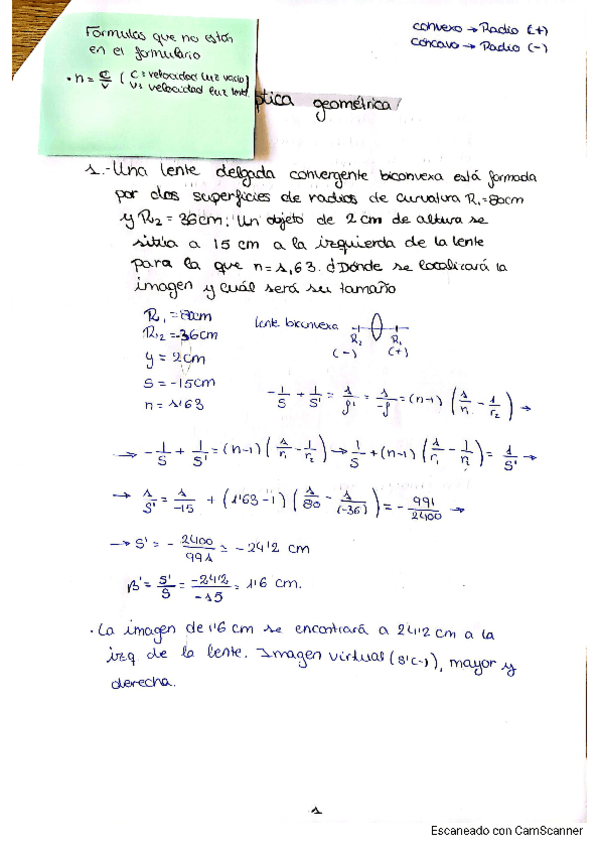 Formulas que no están
en el formulario
• n = c/v ( c = velocidad luz vacío)
v = velocidad luz lente
convexo → Radio (+)
Cóncavo → Radio (-)
óptica geométrica
1.- Una lente delgada convergente biconvexa está formada
por dos superficies de radios de curvatura R₁=80cm
y R₂ = 36cm. Un objeto de 2 cm de altura se
sitúa a 15 cm a la izquierda de la lente
para la que n=1,63. ¿Dónde se localizará la
imagen y cuál será su tamaño
R₁ = 80cm
R₂ = -36cm
y = 2cm
S = -15cm
n = 1'63
lente biconvexa
R₂ R₁
(-) (+)
-1/S + 1/S' = 1/f' = 1/-f = (n-1) (1/r₁ - 1/r₂) →
→ -1/S + 1/S' = (n-1) (1/r₁ - 1/r₂) → 1/S + (n-1) (1/r₁ - 1/r₂) = 1/S' →
→ 1/S' = 1/-15 + (1'63-1) (1/80 - 1/(-36)) = - 991/2400 →
→ S' = - 2400/991 = - 24'2 cm
β' = S'/S = -24'2/-15 = 1'6 cm.
• La imagen de 1'6 cm se encontrará a 24'2 cm a la
izq de la lente. Imagen virtual (S'(-)), mayor y
derecha.
1
Escaneado con CamScanner